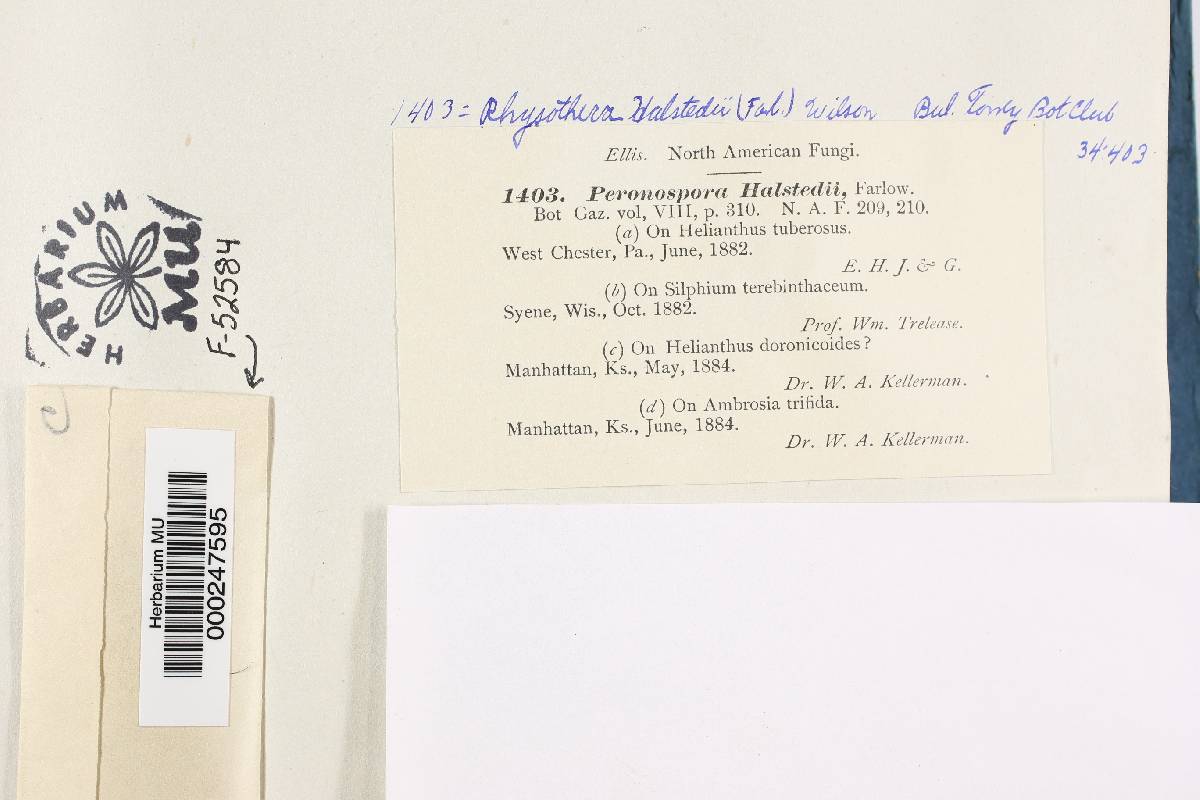 1403 = Rhysothera Halstedii (Farl.) Wilson Bul. Torrey Bot Club
34:403
Ellis. North American Fungi.
1403. Peronospora Halstedii, Farlow.
Bot Gaz. vol, VIII, p. 310. N. A. F. 209, 210.
(a) On Helianthus tuberosus.
West Chester, Pa., June, 1882.
E. H. J. & G.
(b) On Silphium terebinthaceum.
Syene, Wis., Oct. 1882.
Prof. Wm. Trelease.
(c) On Helianthus doronicoides?
Manhattan, Ks., May, 1884.
Dr. W. A. Kellerman.
(d) On Ambrosia trifida.
Manhattan, Ks., June, 1884.
Dr. W. A. Kellerman.
HERBARIUM
MU
F-52584
C
Herbarium MU
000247595